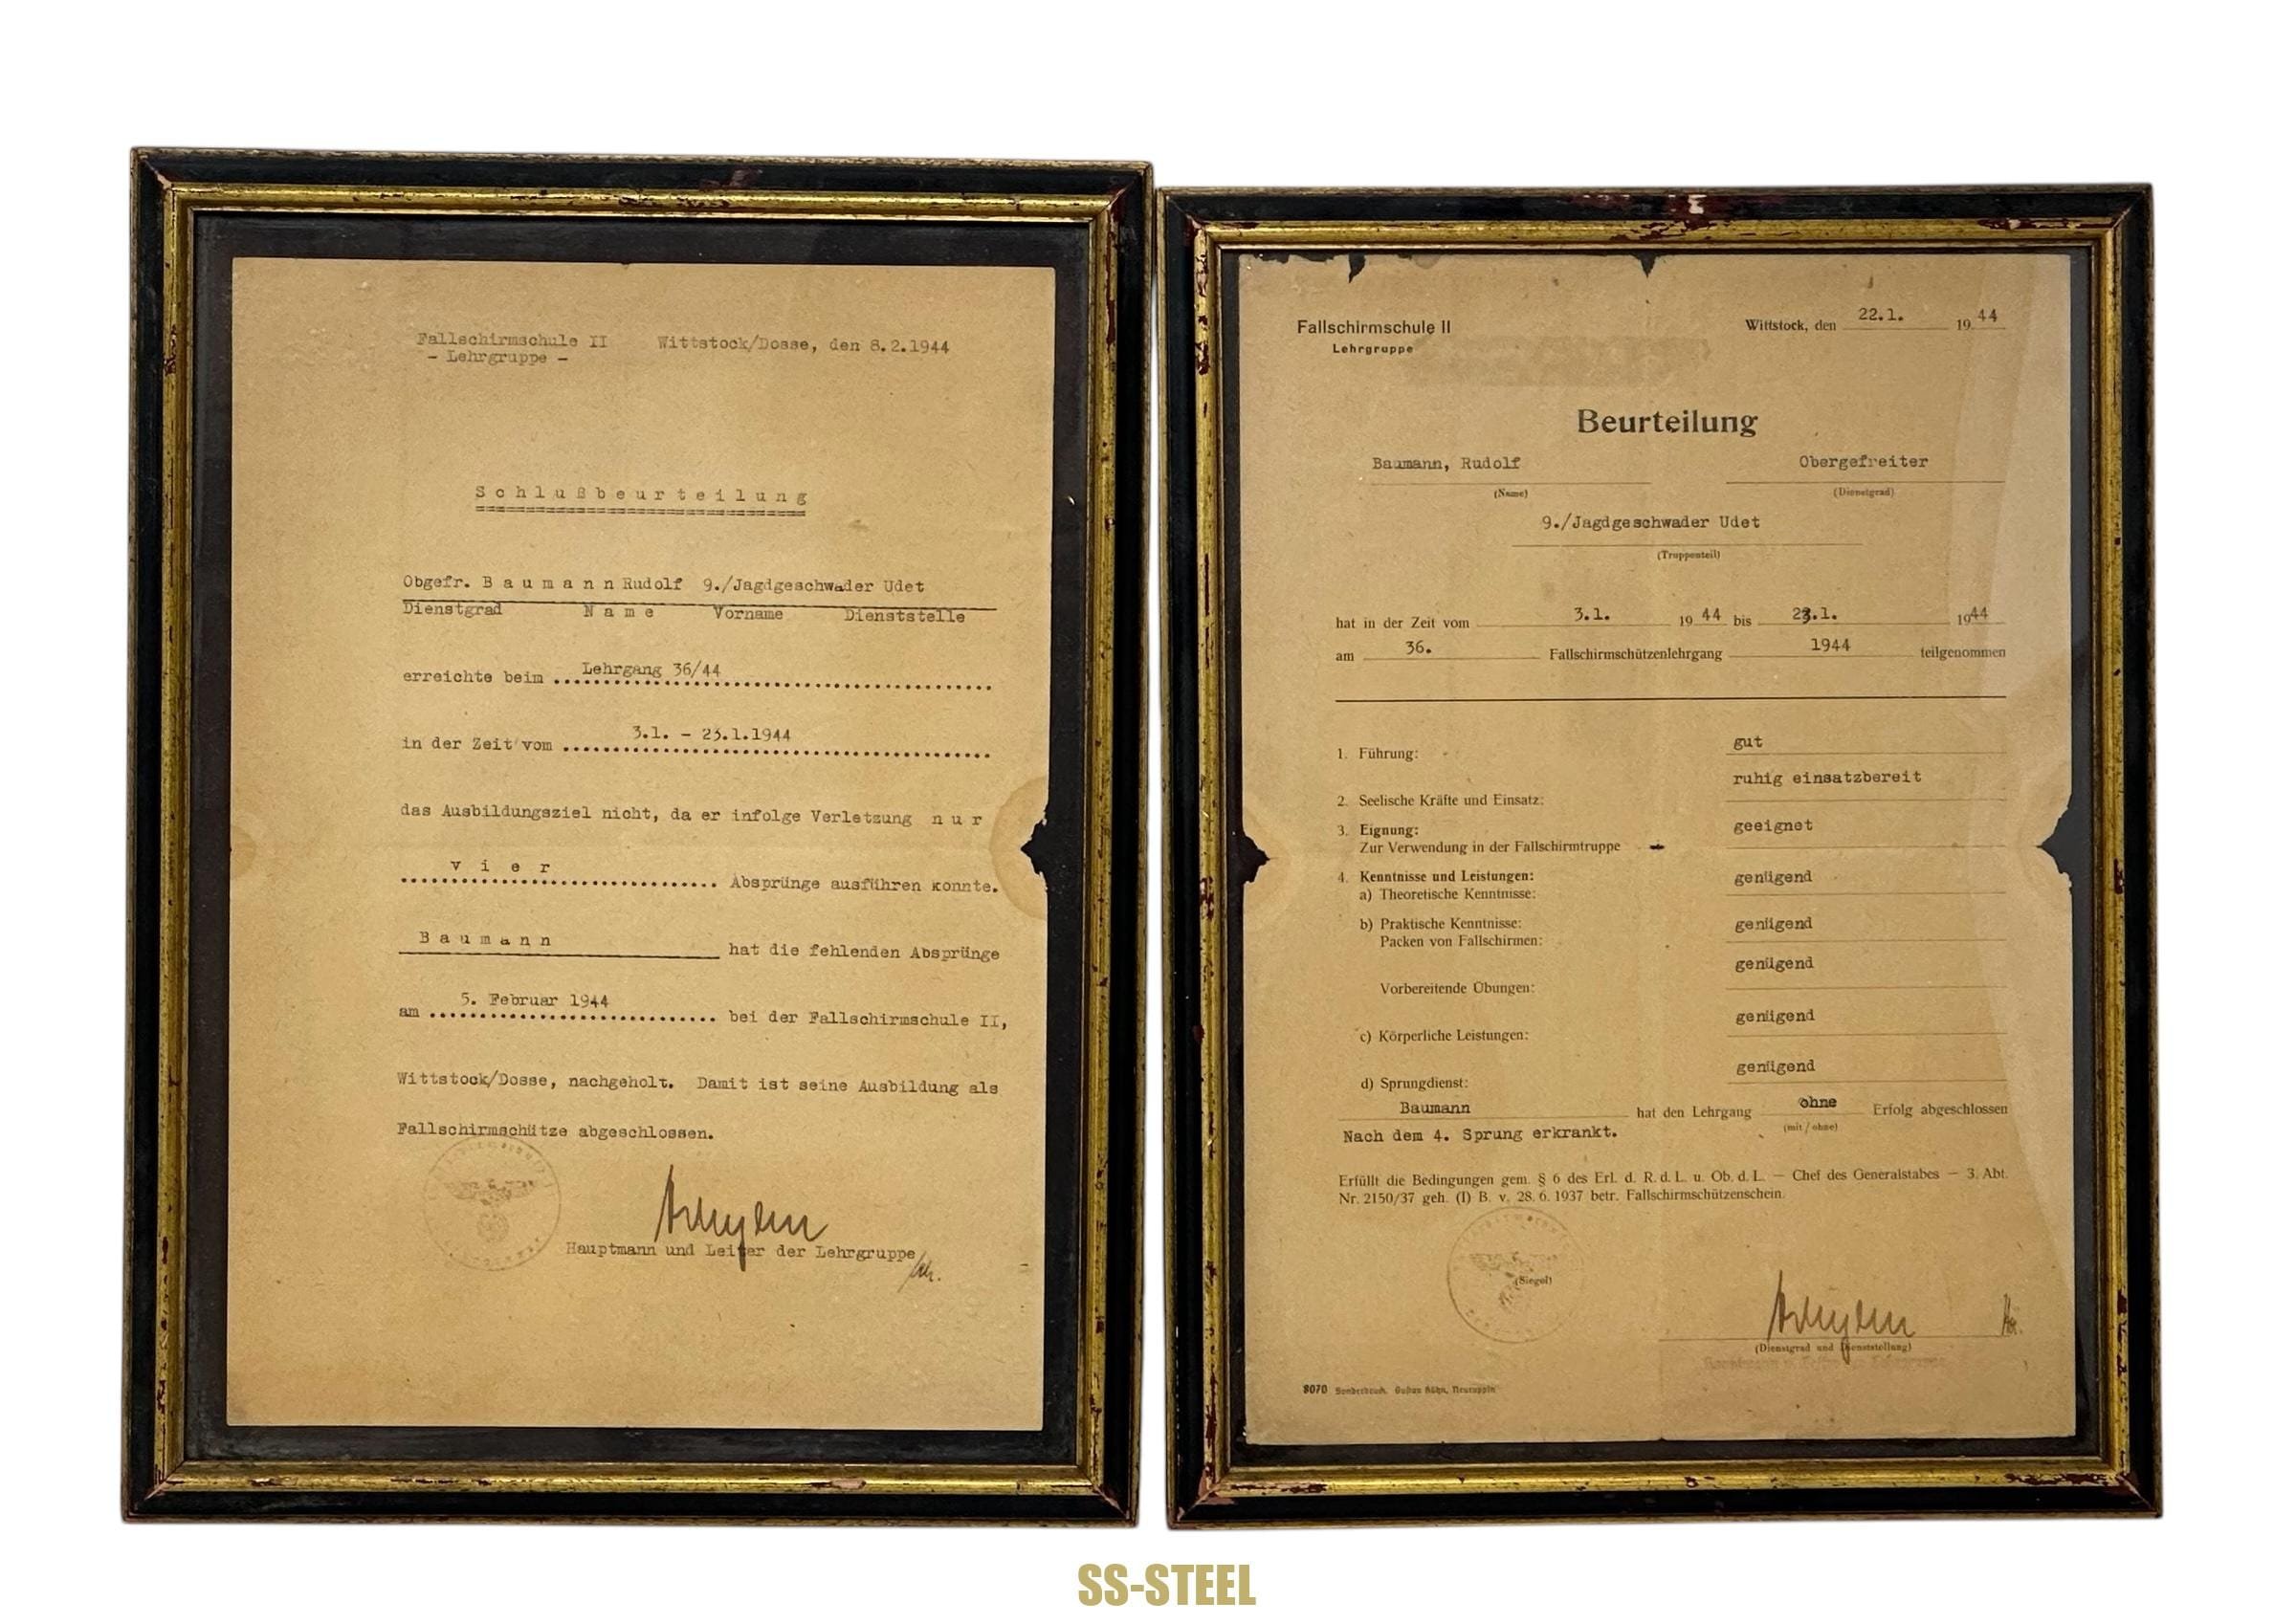 Fallschirmschule II Wittstock/Dosse, den 8.2.1944
- Lehrgruppe -
Schlußbeurteilung
Obgefr. Baumann Rudolf 9./Jagdgeschwader Udet
Dienstgrad Name Vorname Dienststelle
erreichte beim Lehrgang 36/44
in der Zeit vom 3.1. - 23.1.1944
das Ausbildungsziel nicht, da er infolge Verletzung nur
vier Absprünge ausführen konnte.
Baumann hat die fehlenden Absprünge
am 5. Februar 1944 bei der Fallschirmschule II,
Wittstock/Dosse, nachgeholt. Damit ist seine Ausbildung als
Fallschirmschütze abgeschlossen.
Hauptmann und Leiter der Lehrgruppe
Fallschirmschule II Wittstock, den 22.1. 1944
Lehrgruppe
Beurteilung
Baumann, Rudolf Obergefreiter
(Name) (Dienstgrad)
9./Jagdgeschwader Udet
(Truppenteil)
hat in der Zeit vom 3.1. 1944 bis 23.1. 1944
am 36. Fallschirmschützenlehrgang 1944 teilgenommen
1. Führung: gut
2. Seelische Kräfte und Einsatz: ruhig einsatzbereit
3. Eignung:
Zur Verwendung in der Fallschirmtruppe geeignet
4. Kenntnisse und Leistungen:
a) Theoretische Kenntnisse: genügend
b) Praktische Kenntnisse:
Packen von Fallschirmen: genügend
Vorbereitende Übungen: genügend
c) Körperliche Leistungen: genügend
d) Sprungdienst: genügend
Baumann hat den Lehrgang ohne Erfolg abgeschlossen
(mit / ohne)
Nach dem 4. Sprung erkrankt.
Erfüllt die Bedingungen gem. § 6 des Erl. d. R. d. L. u. Ob. d. L. — Chef des Generalstabes — 3. Abt.
Nr. 2150/37 geh. (I) B. v. 28. 6. 1937 betr. Fallschirmschützenschein.
(Siegel)
(Dienstgrad und Dienststellung)
8070 Sonderdruck. Gustav Kühn, Neuruppin
SS-STEEL